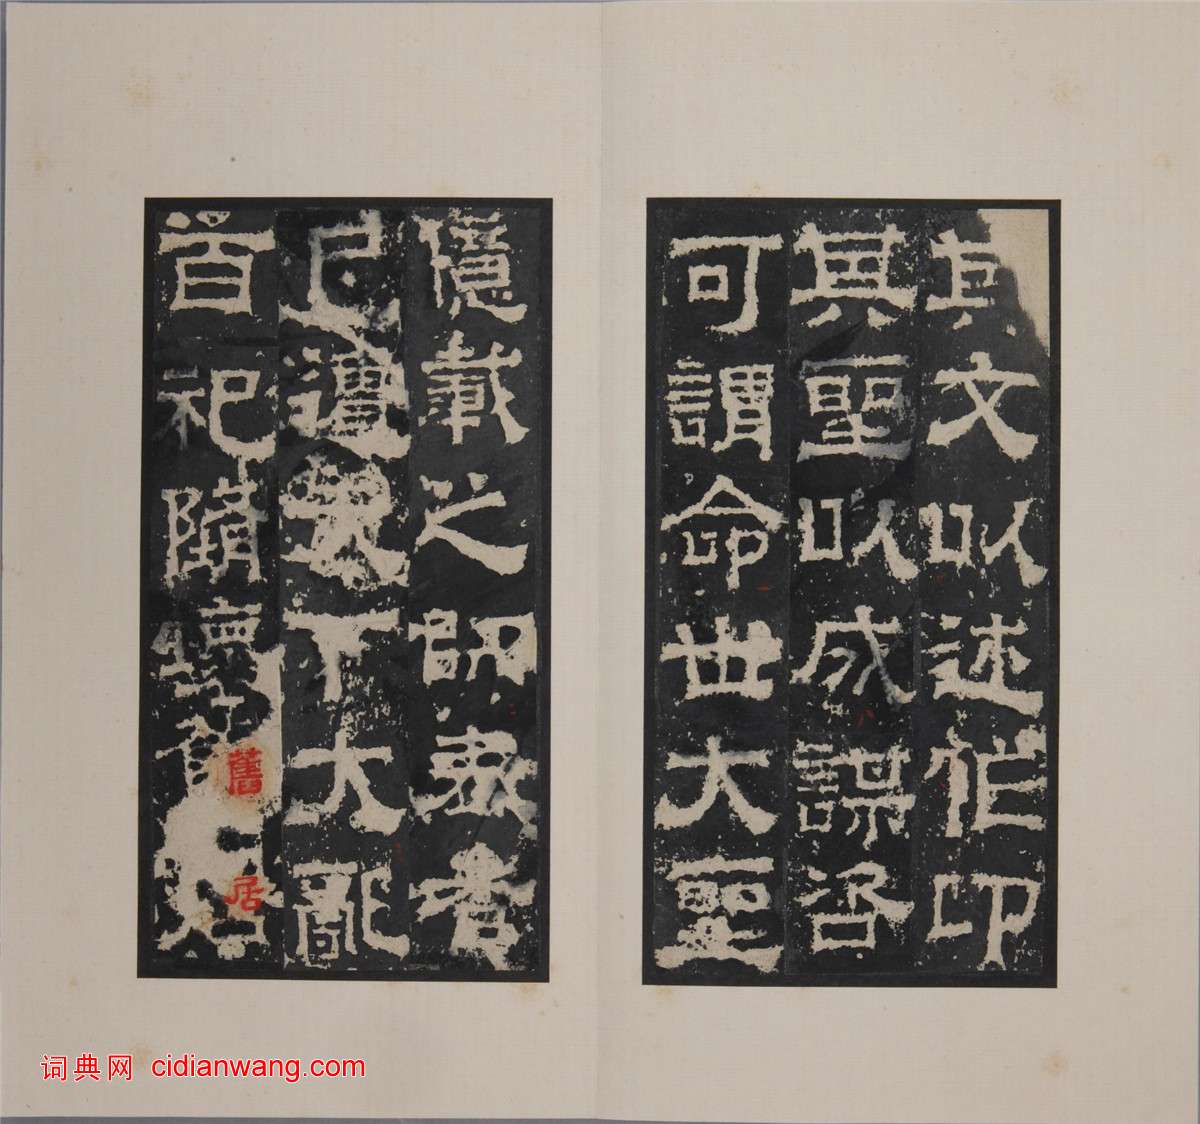 其文以述作卬
其聖以成謀咨
可謂命世大聖
億載之師表者
已遭天下大亂
百祀墮壞舊居
词典网 cidianwang.com